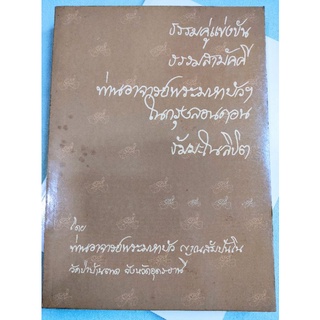 ธรรมคู่แข่งขัน
ธรรมสามัคคี
ท่านอาจารย์พระมหาบัวฯ
ในกรุงลอนดอน
ธัมมะในลิขิต
โดย
ท่านอาจารย์พระมหาบัว ญาณสัมปันโน
วัดป่าบ้านตาด จังหวัดอุดรธานี